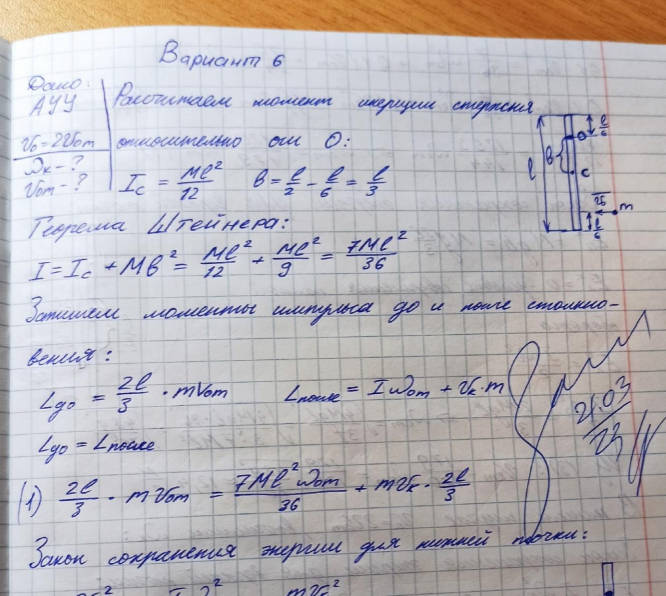 Вариант 6
Дано:
АУУ
v₀ = 2v₀т
ωк - ?
v₀т - ?
Рассчитаем момент инерции стержня
относительно оси О:
I_c = Ml²/12   b = l/2 - l/6 = l/3
l
b
l/6
O
C
v
m
l/6
Теорема Штейнера:
I = I_c + Mb² = Ml²/12 + Ml²/9 = 7Ml²/36
Запишем моменты импульса до и после столкно-
вения:
L_до = 2l/3 · mv₀т   L_после = Iω₀т + v_к · m
L_до = L_после
(1) 2l/3 · mv₀т = 7Ml²ω₀т/36 + mv_к · 2l/3
21.03
23
Закон сохранения энергии для нижней точки: